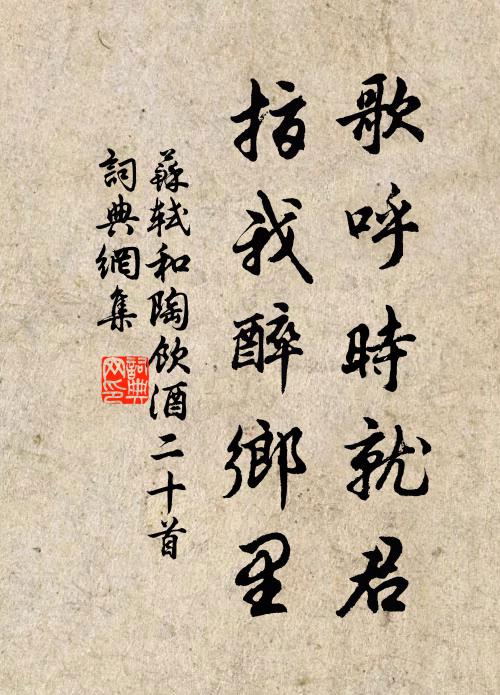 歌呼時就君
指我醉鄉里
蘇軾和陶飲酒二十首
詞典網集
詞典網印